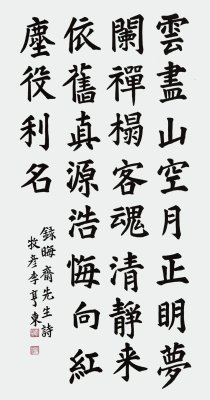 雲盡山空月正明夢
闌禪榻客魂清靜来
依舊真源浩悔向紅
塵役利名
錄晦齋先生詩
牧彦李亨東